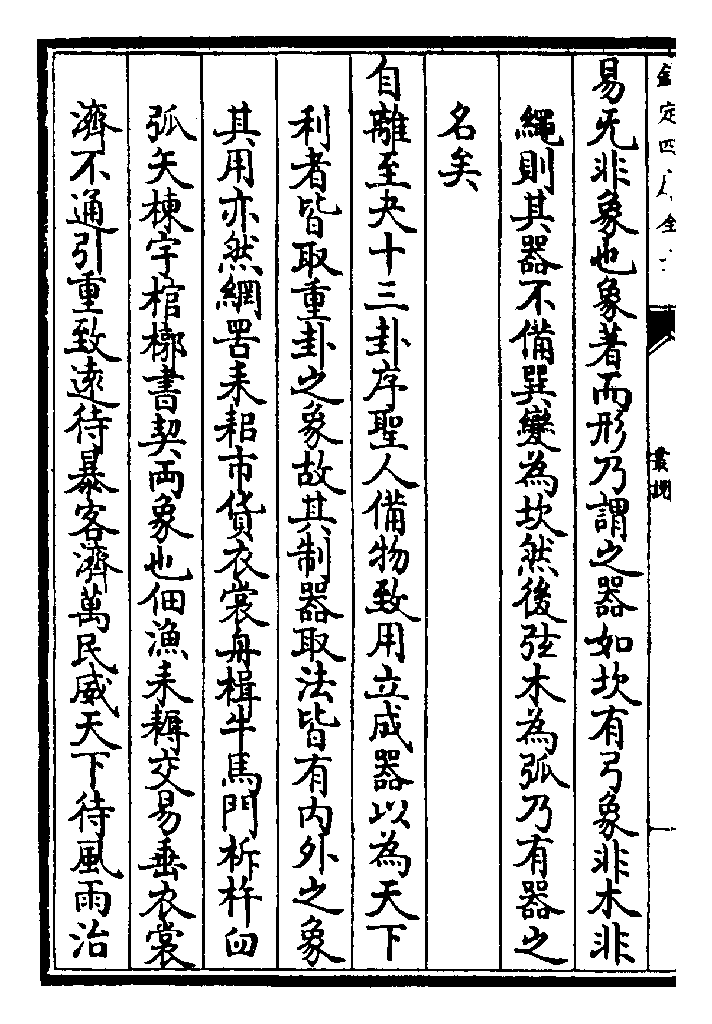 欽定四庫全書
叢説
易无非象也象著而形乃謂之器如坎有弓象非木非
繩則其器不備巽變為坎然後弦木為弧乃有器之
名矣
自離至夬十三卦序聖人備物致用立成器以為天下
利者皆取重卦之象故其制器取法皆有内外之象
其用亦然網罟耒耜市貨衣裳舟楫牛馬門柝杵臼
弧矢棟宇棺槨書契兩象也佃漁耒耨交易垂衣裳
濟不通引重致逺待暴客濟萬民威天下待風雨治